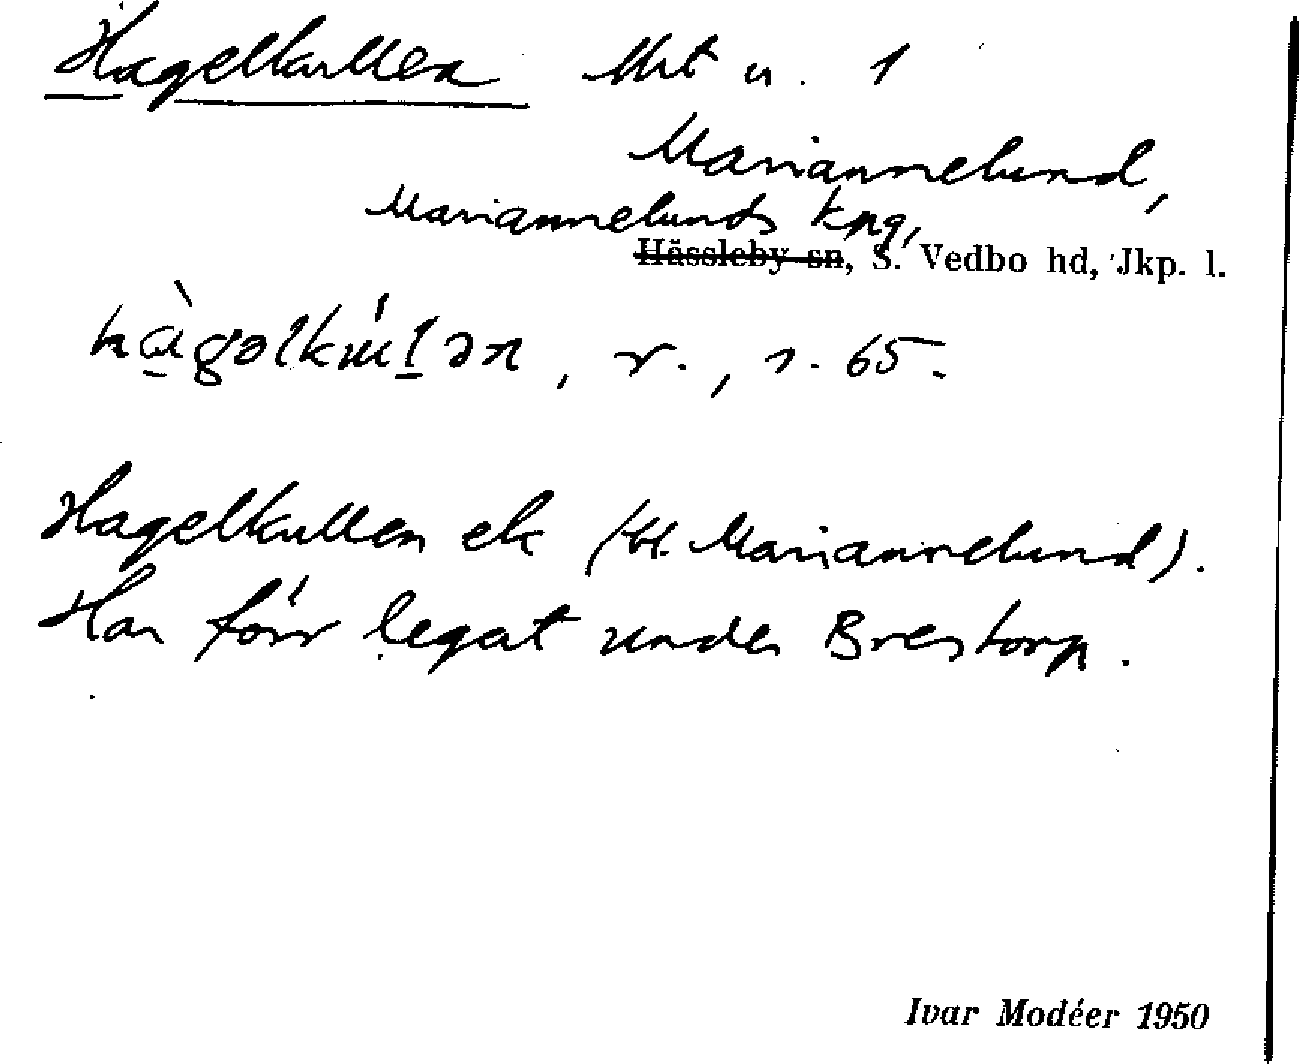 Hagelkullen Mrt u. 1
Mariannelund,
Mariannelunds kpg,
Hässleby sn, S. Vedbo hd, Jkp. l.
hàgəlkúl̠ən, r., s. 65.
Hagelkullen ek (kbl. Mariannelund).
Har förr legat under Brestorp.
Ivar Modéer 1950